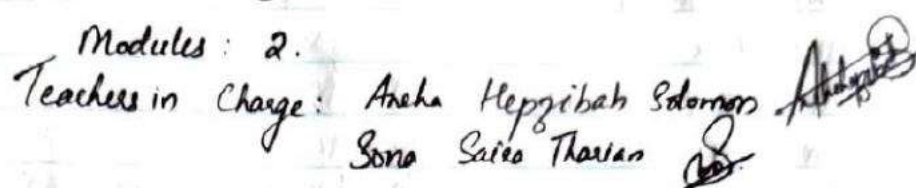 Modules : 2.
Teachers in Charge : Aneha Hepzibah Solomon
Sona Saira Tharian